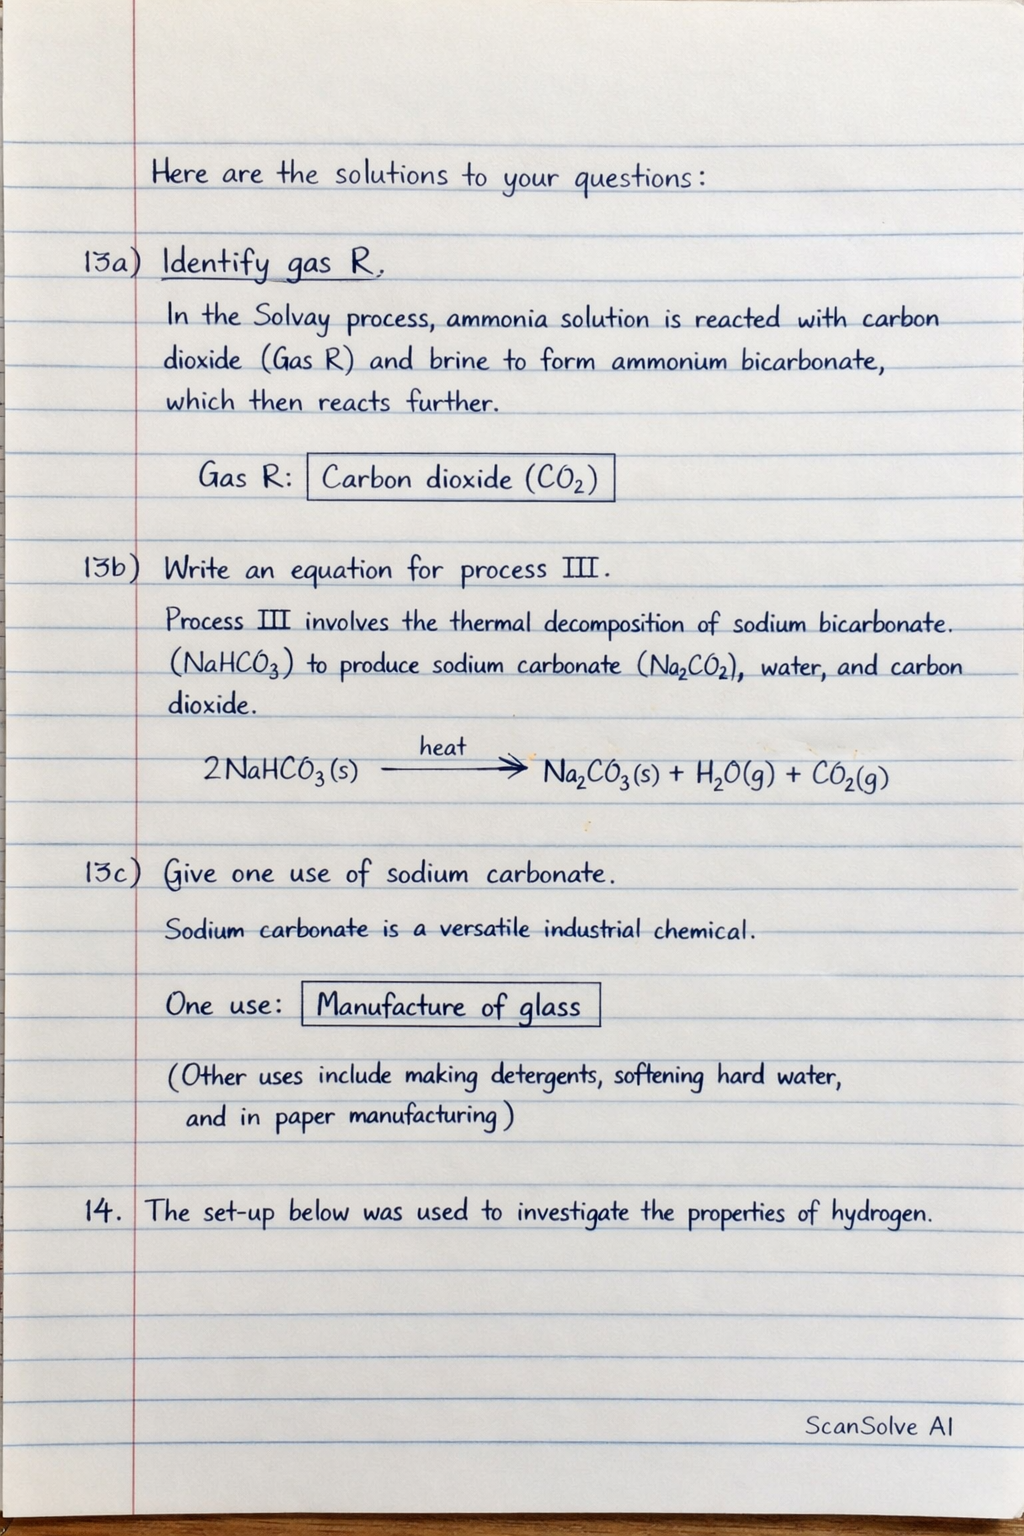 Here are the solutions to your questions:
13a) Identify gas R.
In the Solvay process, ammonia solution is reacted with carbon
dioxide (Gas R) and brine to form ammonium bicarbonate,
which then reacts further.
Gas R: Carbon dioxide (CO₂)
13b) Write an equation for process III.
Process III involves the thermal decomposition of sodium bicarbonate.
(NaHCO₃) to produce sodium carbonate (Na₂CO₂), water, and carbon
dioxide.
heat
2NaHCO₃(s) → Na₂CO₃(s) + H₂O(g) + CO₂(g)
13c) Give one use of sodium carbonate.
Sodium carbonate is a versatile industrial chemical.
One use: Manufacture of glass
(Other uses include making detergents, softening hard water,
and in paper manufacturing)
14. The set-up below was used to investigate the properties of hydrogen.
ScanSolve AI